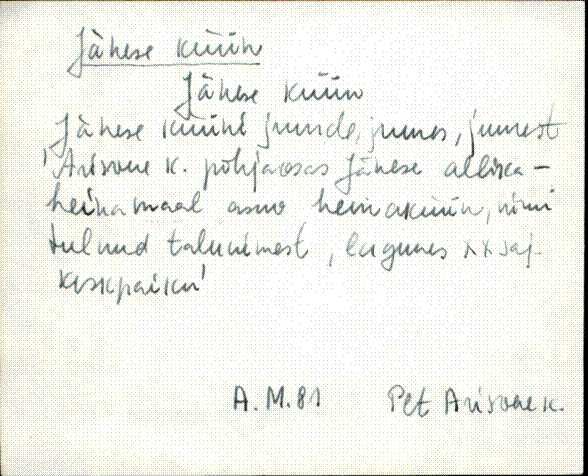 Jähese küün
Jähese küün
Jähese küüni juude, juures, juurest
'Arisvere k. põhjaosas Jähese allika-
heinamaal asuv heinaküün, nimi
tulnud talunimest, lagunes XX saj.
keskpaiku'
A.M.81 Plt Arisvere k.